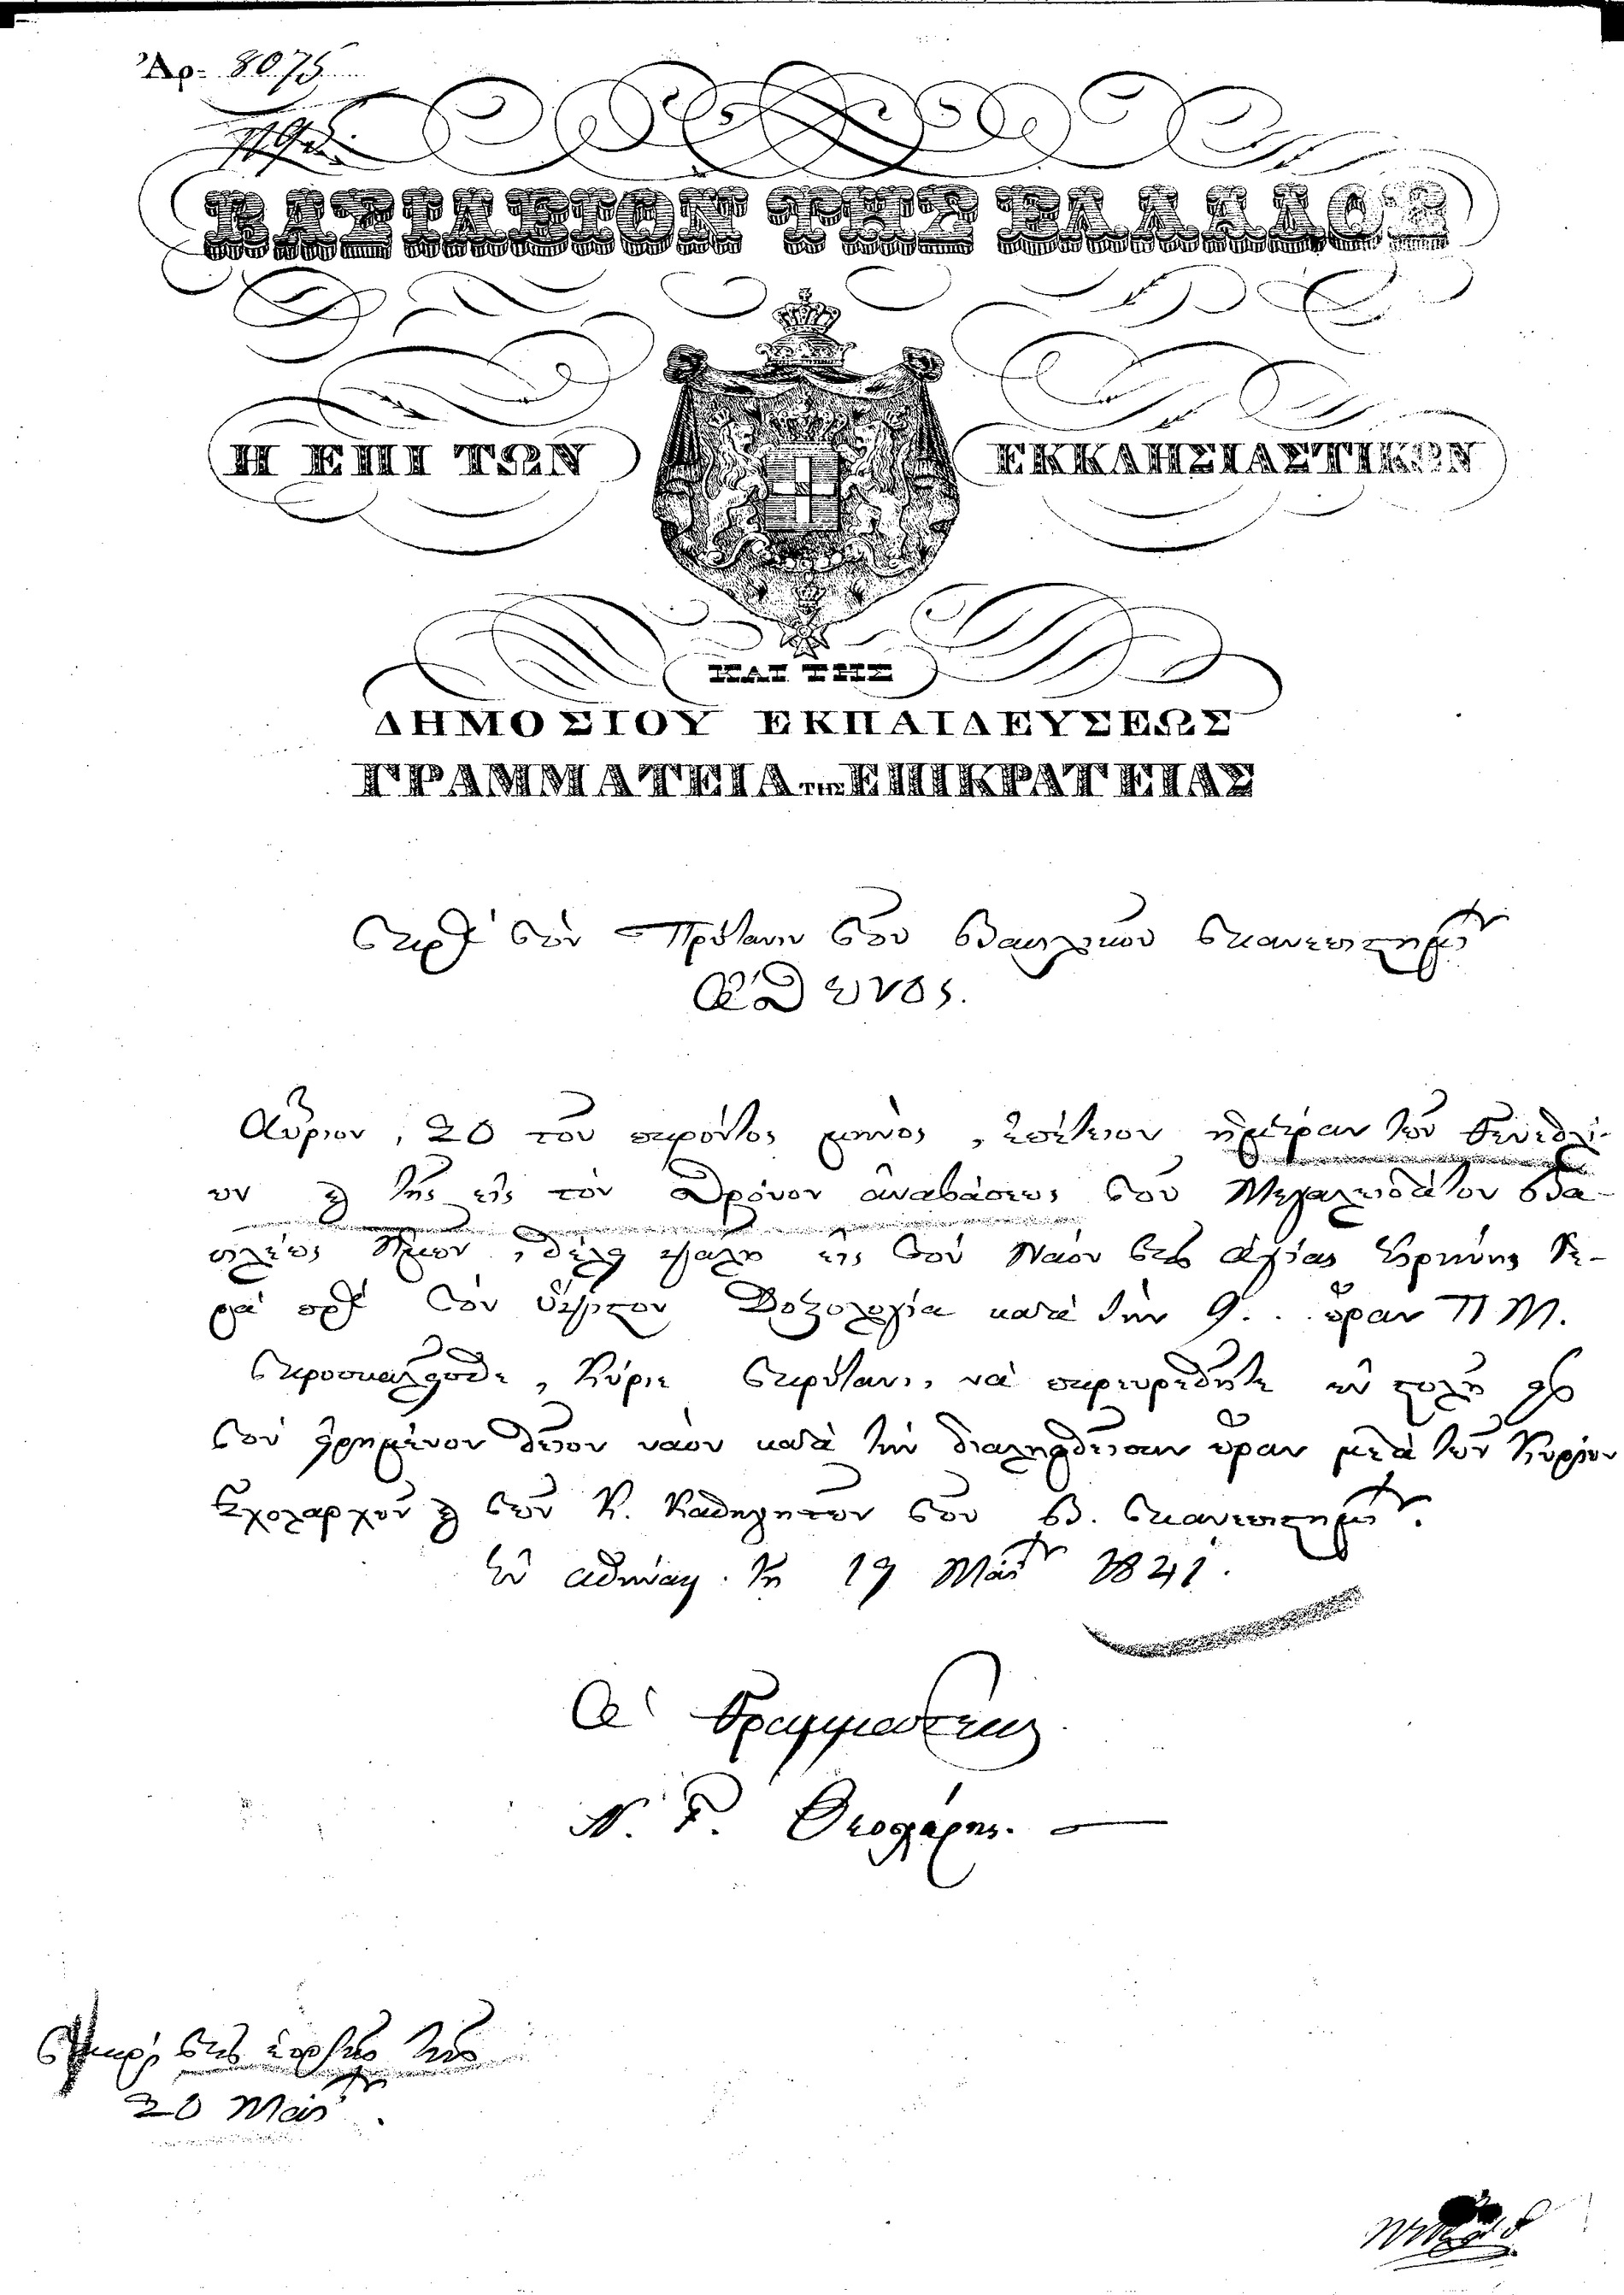 Ἀρ. 8075
ΒΑΣΙΛΕΙΟΝ ΤΗΣ ΕΛΛΑΔΟΣ
Η ΕΠΙ ΤΩΝ ΕΚΚΛΗΣΙΑΣΤΙΚΩΝ
ΚΑΙ ΤΗΣ
ΔΗΜΟΣΙΟΥ ΕΚΠΑΙΔΕΥΣΕΩΣ
ΓΡΑΜΜΑΤΕΙΑ ΤΗΣ ΕΠΙΚΡΑΤΕΙΑΣ
Πρὸς τὸν Πρύτανιν τοῦ Βασιλικοῦ Πανεπιστημίου
Ὄθωνος.
Αὔριον, 20 τοῦ παρόντος μηνὸς, ἐπέτειον ἡμέραν τῶν Γενεθλί-
ων καὶ τῆς εἰς τὸν Θρόνον ἀναβάσεως τοῦ Μεγαλειοτάτου Βα-
σιλέως ἡμῶν, θέλει ψαλῆ εἰς τὸν Ναὸν τῆς ἁγίας Εἰρήνης ἱε-
ρὰ πρὸς τὸν ὕψιστον Δοξολογία κατὰ τὴν 9. ὥραν Π Μ.
Προσκαλεῖσθε, Κύριε Πρύτανι, νὰ παρευρεθῆτε ἐν στολῇ εἰς
τὸν εἰρημένον θεῖον ναὸν κατὰ τὴν διαληφθεῖσαν ὥραν μετὰ τῶν Κυρίων
Σχολαρχῶν καὶ τῶν Κ. Καθηγητῶν τοῦ Β. Πανεπιστημίου.
Ἐν Ἀθήναις τῇ 19 Μαΐου 1841.
Ὁ Γραμματεὺς
Ν. Γ. Θεοχάρης.
Περὶ τῆς ἑορτῆς τῆς
20 Μαΐου.